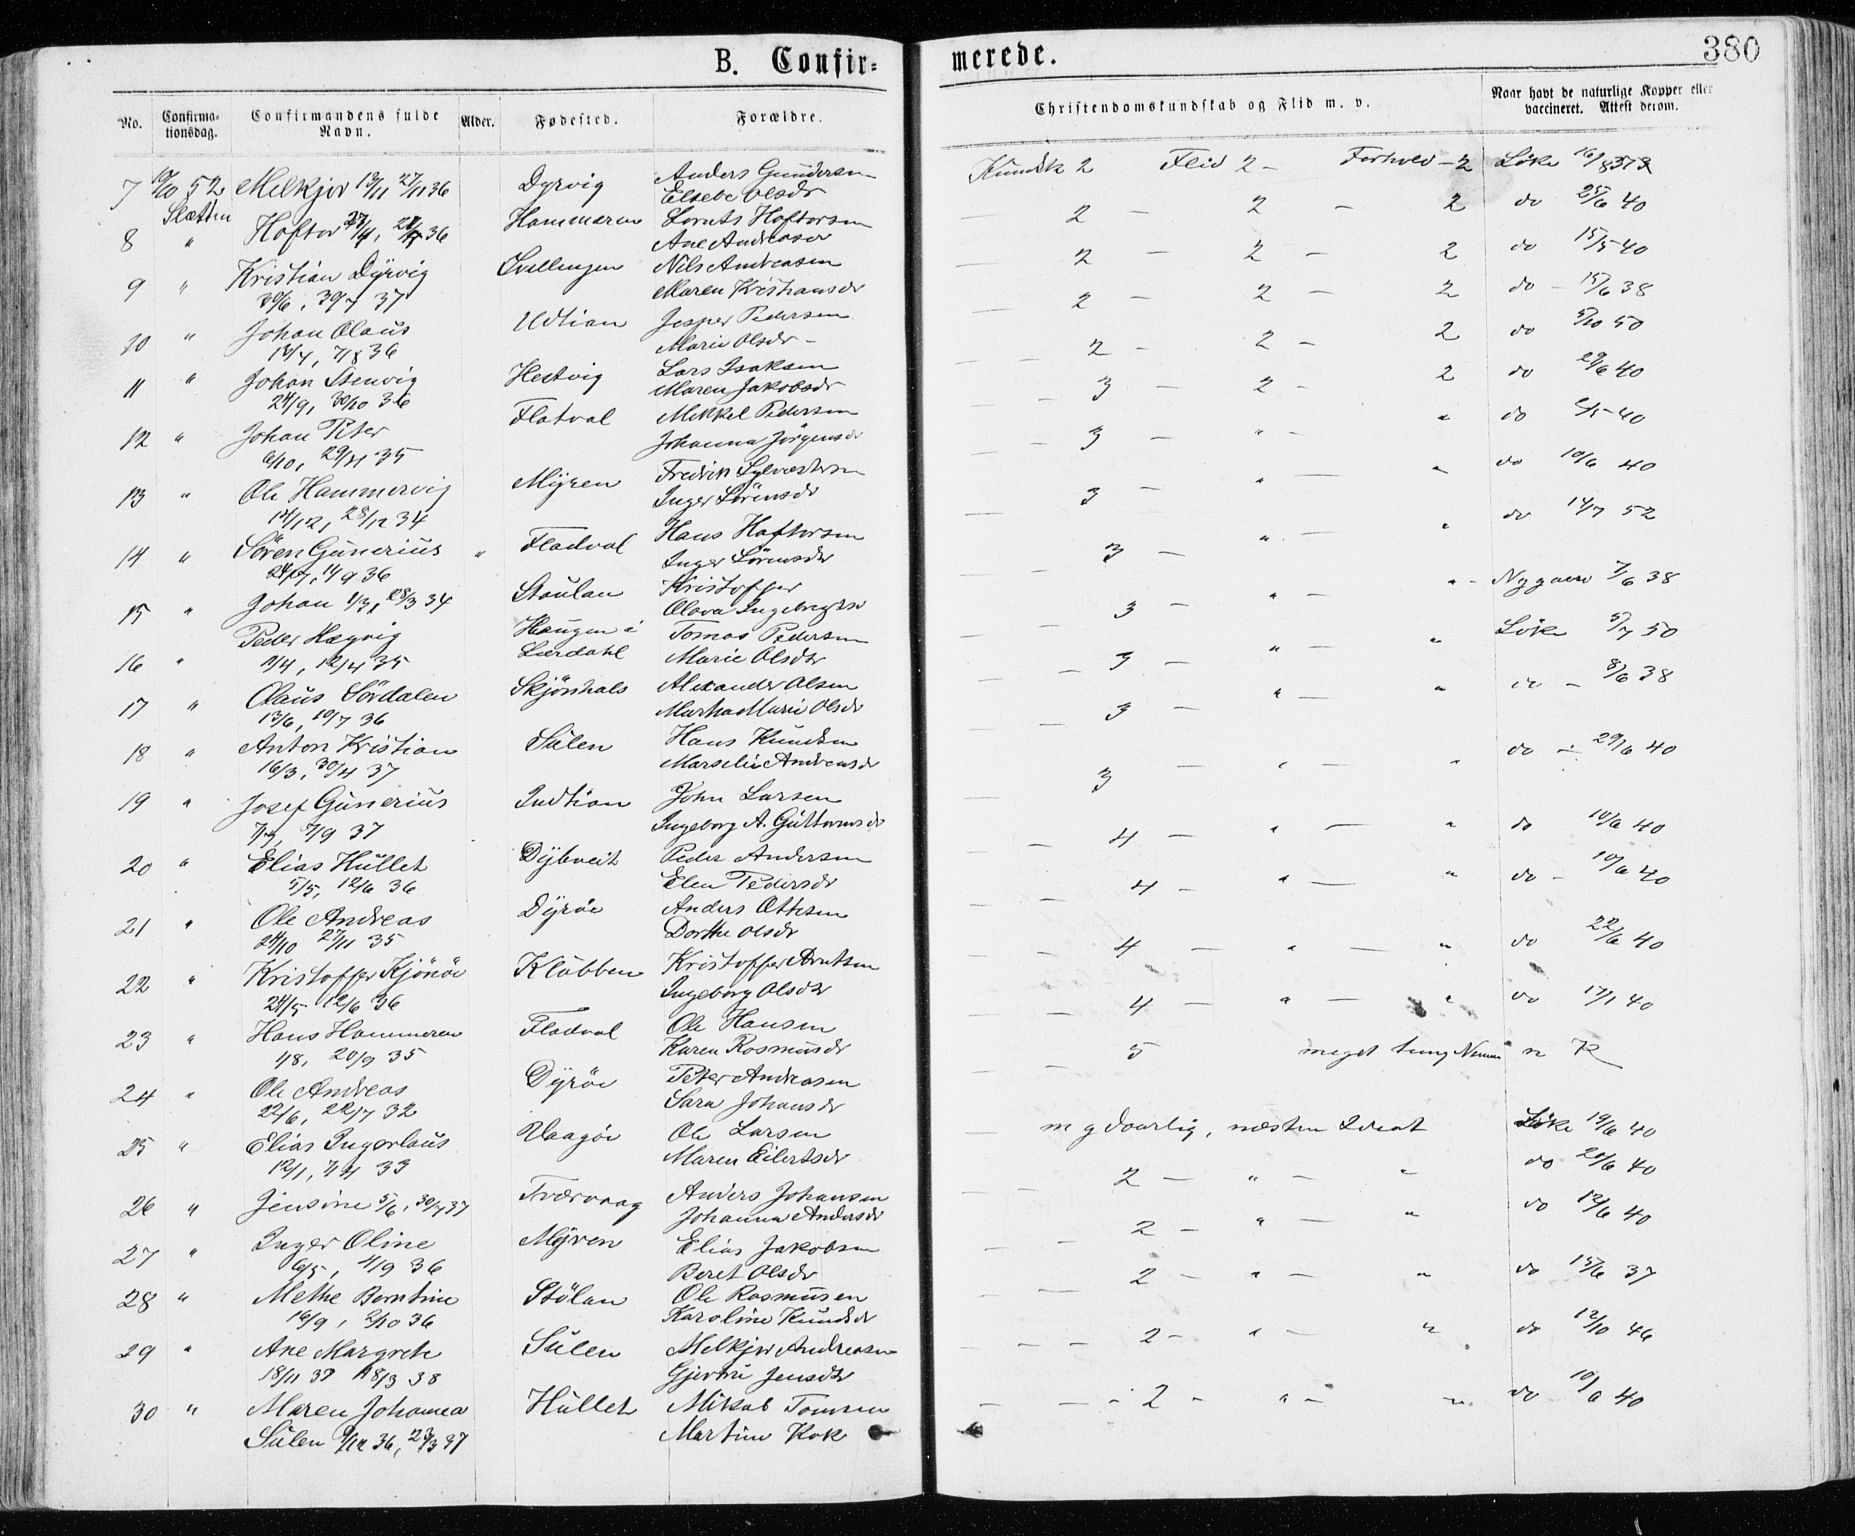 B. Confir-
merede.
380
No.
Confirma-
tionsdag.
Confirmandens fulde
Navn.
Alder.
Fødested.
Forældre.
Christendomskundskab og Flid m. v.
Naar havt de naturlige Kopper eller
vaccineret. Attest derom.
7 10/10 52 Melkjor 13/11 27/11 36 Dyrvig Anders Gundersen
Elsebe Olsdr Kundsk 2 Flid 2 - Forhold - 2 Löke 16/8 37
Sletten
8 " Hoftor 36 Hammeren Lornts Hoftorsen
Ane Andreasdr — 2 — 2 — 2 do 25/6 40
9 " Kristian Dyrvig Svellingen Nils Andreasen
30/6, 30/7 37 Maren Kristiansdr — 2 — 2 — 2 do 15/5 40
10 " Johan Olaus Udtian Jesper Pedersen
18/4, 7/8 36 Marie Olsdr — — 2 — 2 — 2 do — 15/6 38
11 " Johan Stenvig Hestvig Lars Isaksen
24/9, 30/10 36 Maren Jakobsdr — — 2 — 2 — 2 do 5/10 50
12 " Johan Peter Flatval Mikkel Pedersen
6/10, 29/11 35 Johanna Jörgensdr — — 3 — 2 — 2 do 29/6 40
13 " Ole Hammervig Myren Fredrik Sylvestersen
14/12, 28/12 34 Inger Sörensdr — 3 — " — " do 6/5 40
14 " Sören Gunerius " Fladval Hans Hoftorsen
24/7, 11/9 36 Inger Sörensdr — 3 — " — " do 10/6 40
15 " Johan 1/3, 28/3 34 Stoulan Kristoffer
Olava Ingebrigtsdr — 3 — " — " do 14/7 52
16 " Peder Hegvig Haugen i Tomas Pedersen
1/4, 12/4 35 Lærdahl Marie Olsdr — 3 — " — " — Nygaard 7/6 38
17 " Olaus Sördalen Skjönhals Alexander Olsen
13/6, 10/7 36 Martha Marie Olsdr — 3 — " — " Löke 5/7 50
18 " Anton Kristian Sulen Hans Knudsen
16/3, 30/4 37 Marselie Andreasdr — 3 — " — " do — 8/6 38
19 " Josef Gunerius Indtian John Larsen
7/9 37 Ingeborg A. Guttormsdr — 3 — " — " do — 29/6 40
20 " Elias Hullet Dybveit Peder Andersen
5/5, 12/6 36 Elen Pedersdr — 4 — " — " do 10/6 40
21 " Ole Andreas Dyröe Anders Ottesen
24/10 27/11 35 Dorthe Olsdr — 4 — " — " do — 10/6 40
22 " Kristoffer Kjönöe Klubben Kristoffer Arntsen
24/5 12/6 36 Ingeborg Olsdr — 4 — " — " do 22/6 40
23 " Hans Hammeren Fladval Ole Hansen
20/9 35 Karen Rasmusdr — 4 — " — " do 17/1 40
24 " Ole Andreas Dyröe Peter Andreasen
22/6, 22/7 32 Sara Johansdr — 5 meget tung Nemme n K
25 " Elias Ingerlaus Vaagöe Ole Larsen
12/1, 33 Maren Eilertsdr m g daarlig, næsten Idiot Löke 19/6 40
26 " Jensine 5/6, 30/7 37 Tværvaag Anders Johansen
Johanna Andersdr — — 2 — " — " do 20/6 40
27 " Inger Oline Myren Elias Jakobsen
6/5, 4/9 36 Beret Olsdr — — 2 — " — " do 12/6 40
28 " Methe Berntine Stölan Ole Rasmusen
16/9, 2/10 36 Karoline Knudsdr — — 2 — " — " do 15/6 37
29 " Ane Margreth Sulen Melkjor Andreasen
18/11 37 18/3 38 Gjertru Jensdtr — — 2 — " — " do 12/10 46
30 " Maren Johanna Hullet Mikal Tomsen
Sulen 36, 23/3 37 Martine Kok — — 2 — " — " do 10/6 40